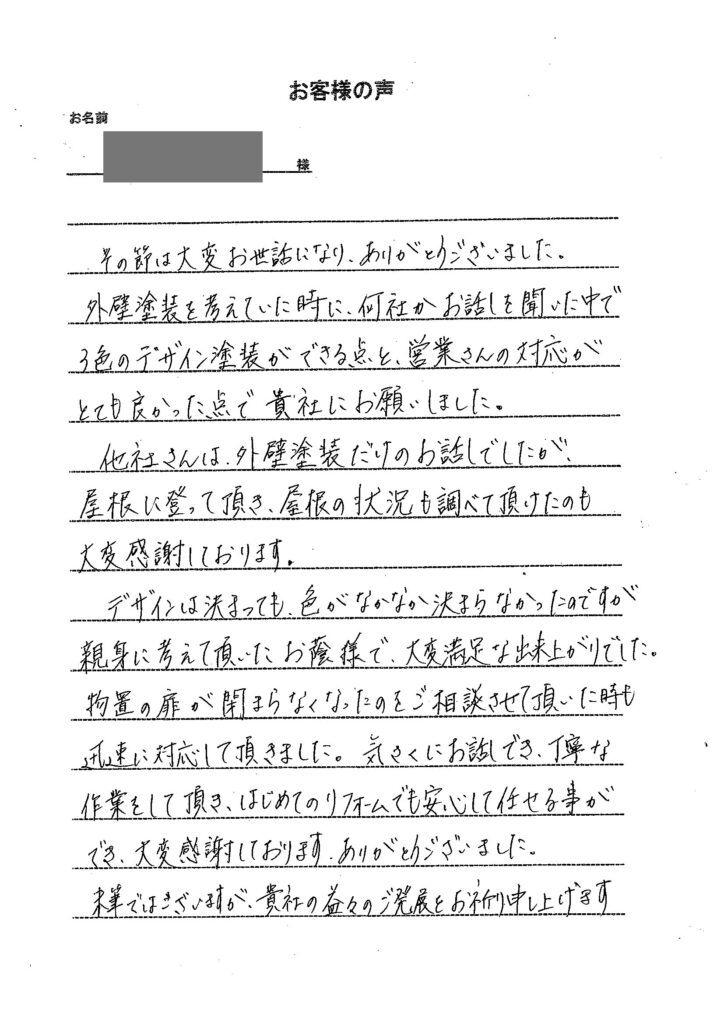 お客様の声
お名前
様
その節は大変お世話になり、ありがとうございました。
外壁塗装を考えていた時に、何社かお話しを聞いた中で
3色のデザイン塗装ができる点と、営業さんの対応が
とても良かった点で貴社にお願いしました。
他社さんは、外壁塗装だけのお話しでしたが、
屋根に登って頂き、屋根の状況も調べて頂けたのも
大変感謝しております。
デザインは決まっても、色がなかなか決まらなかったのですが
親身に考えて頂いたお蔭様で、大変満足な出来上がりでした。
物置の扉が閉まらなくなったのをご相談させて頂いた時も
迅速に対応して頂きました。気さくにお話しでき、丁寧な
作業をして頂き、はじめてのリフォームでも安心して任せる事が
でき、大変感謝しております。ありがとうございました。
末筆ではございますが、貴社の益々のご発展をお祈り申し上げます